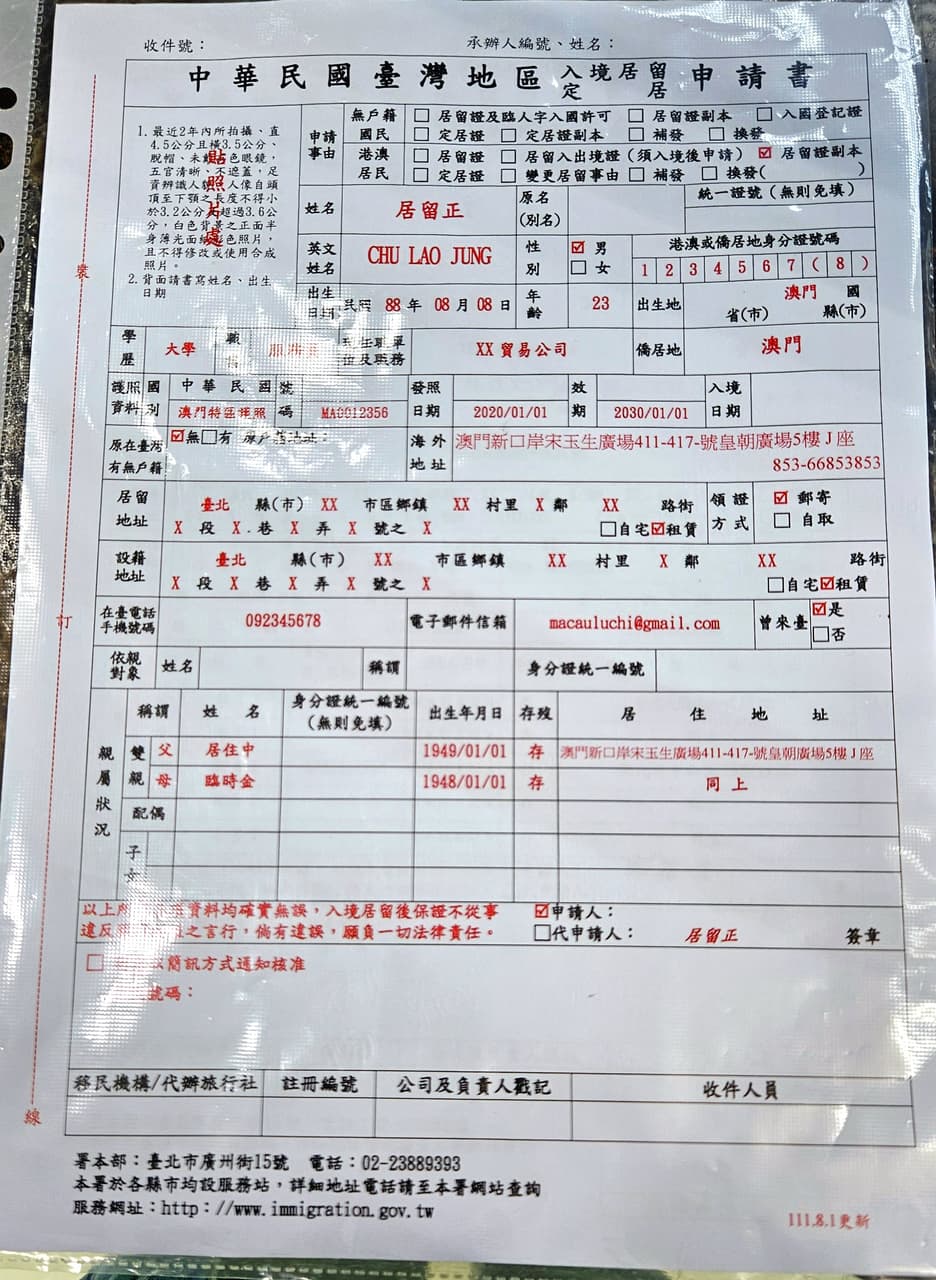 收件號：
承辦人編號、姓名：
中華民國臺灣地區 入境居留 定居 申請書
1. 最近2年內所拍攝、直
4.5公分且橫3.5公分、
脫帽、未戴 色眼鏡，
五官清晰、不遮蓋，足
資辨識人貌 人像自頭
頂至下顎之長度不得小
於3.2公分 超過3.6公
分，白色背景之正面半
身薄光面 色照片，
且不得修改或使用合成
照片。
2. 背面請書寫姓名、出生
日期
貼照片處
申請
事由
無戶籍
國民
□ 居留證及臨人字入國許可 □ 居留證副本 □ 入國登記證
□ 定居證 □ 定居證副本 □ 補發 □ 換發
港澳
居民
□ 居留證 □ 居留入出境證 (須入境後申請) ☑ 居留證副本
□ 定居證 □ 變更居留事由 □ 補發 □ 換發( )
姓名 居留正 原名
(別名)
統一證號 (無則免填)
英文
姓名
CHU LAO JUNG
性
別
☑ 男
□ 女
港澳或僑居地身分證號碼
1 2 3 4 5 6 7 ( 8 )
出生
日期
民國 88 年 08 月 08 日
年
齡
23
出生地
澳門 國
省(市) 縣(市)
學
歷
大學
職
XX 貿易公司
位及職務
僑居地 澳門
護照
資料
國
別
中華民國
澳門特區護照
號
碼
MA0012356
發照
日期
2020/01/01
效
期
2030/01/01
入境
日期
原在臺灣
有無戶籍
☑無□有 原戶籍地址：
海外
地址
澳門新口岸宋玉生廣場411-417-號皇朝廣場5樓J座
853-66853853
居留
地址
臺北 縣(市) XX 市區鄉鎮 XX 村里 X 鄰 XX 路街
X 段 X 巷 X 弄 X 號之 X □自宅☑租賃
領證
方式
☑ 郵寄
□ 自取
設籍
地址
臺北 縣(市) XX 市區鄉鎮 XX 村里 X 鄰 XX 路街
X 段 X 巷 X 弄 X 號之 X □自宅☑租賃
在臺電話
手機號碼
092345678
電子郵件信箱
macauluchi@gmail.com
曾來臺
☑是
□否
依親
對象
姓名 稱謂 身分證統一編號
親屬狀況
稱謂 姓名 身分證統一編號
(無則免填)
出生年月日 存歿 居住地址
雙親
父 居住中 1949/01/01 存 澳門新口岸宋玉生廣場411-417-號皇朝廣場5樓J座
母 臨時金 1948/01/01 存 同上
配偶
子
女
以上 資料均確實無誤，入境居留後保證不從事
違反 之言行，倘有違誤，願負一切法律責任。
☑申請人：
□代申請人： 居留正 簽章
□ 以簡訊方式通知核准
號碼：
移民機構/代辦旅行社 註冊編號 公司及負責人戳記 收件人員
署本部：臺北市廣州街15號 電話：02-23889393
本署於各縣市均設服務站，詳細地址電話請至本署網站查詢
服務網址：http：//www.immigration.gov.tw
111.8.1更新
裝
訂
線